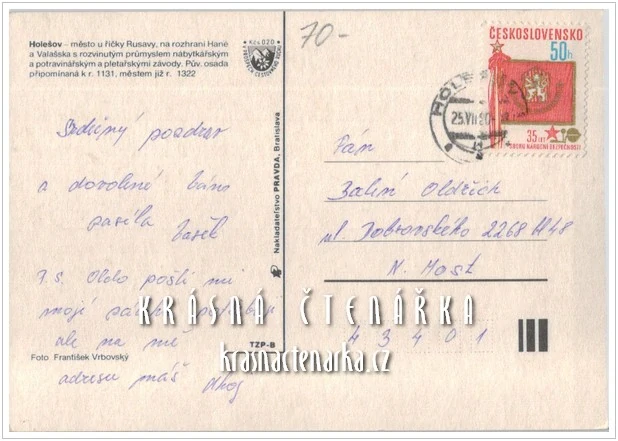 Holešov – město u říčky Rusavy, na rozhraní Hané
a Valašska s rozvinutým průmyslem nábytkářským
a potravinářským a pletařskými závody. Pův. osada
připomínaná k r. 1131, městem již r. 1322
Kčs 0,20
70-
ČESKOSLOVENSKO
50h
35 LET
SBORU NÁRODNÍ BEZPEČNOSTI
HOLEŠOV
25.VII.80
Srdečný pozdrav
z dovolené Vám
zasílá Vašek
P.S. Oldo pošli mi
moji
ale na mé
adresu máš Ahoj
Foto František Vrbovský
Nakladatelství PRAVDA, Bratislava
TZP-B
Pán
Oldřich
ul. Dobrovského 2268
N. Most
43401
KRÁSNÁ ČTENÁŘKA
krasnactenarka.cz